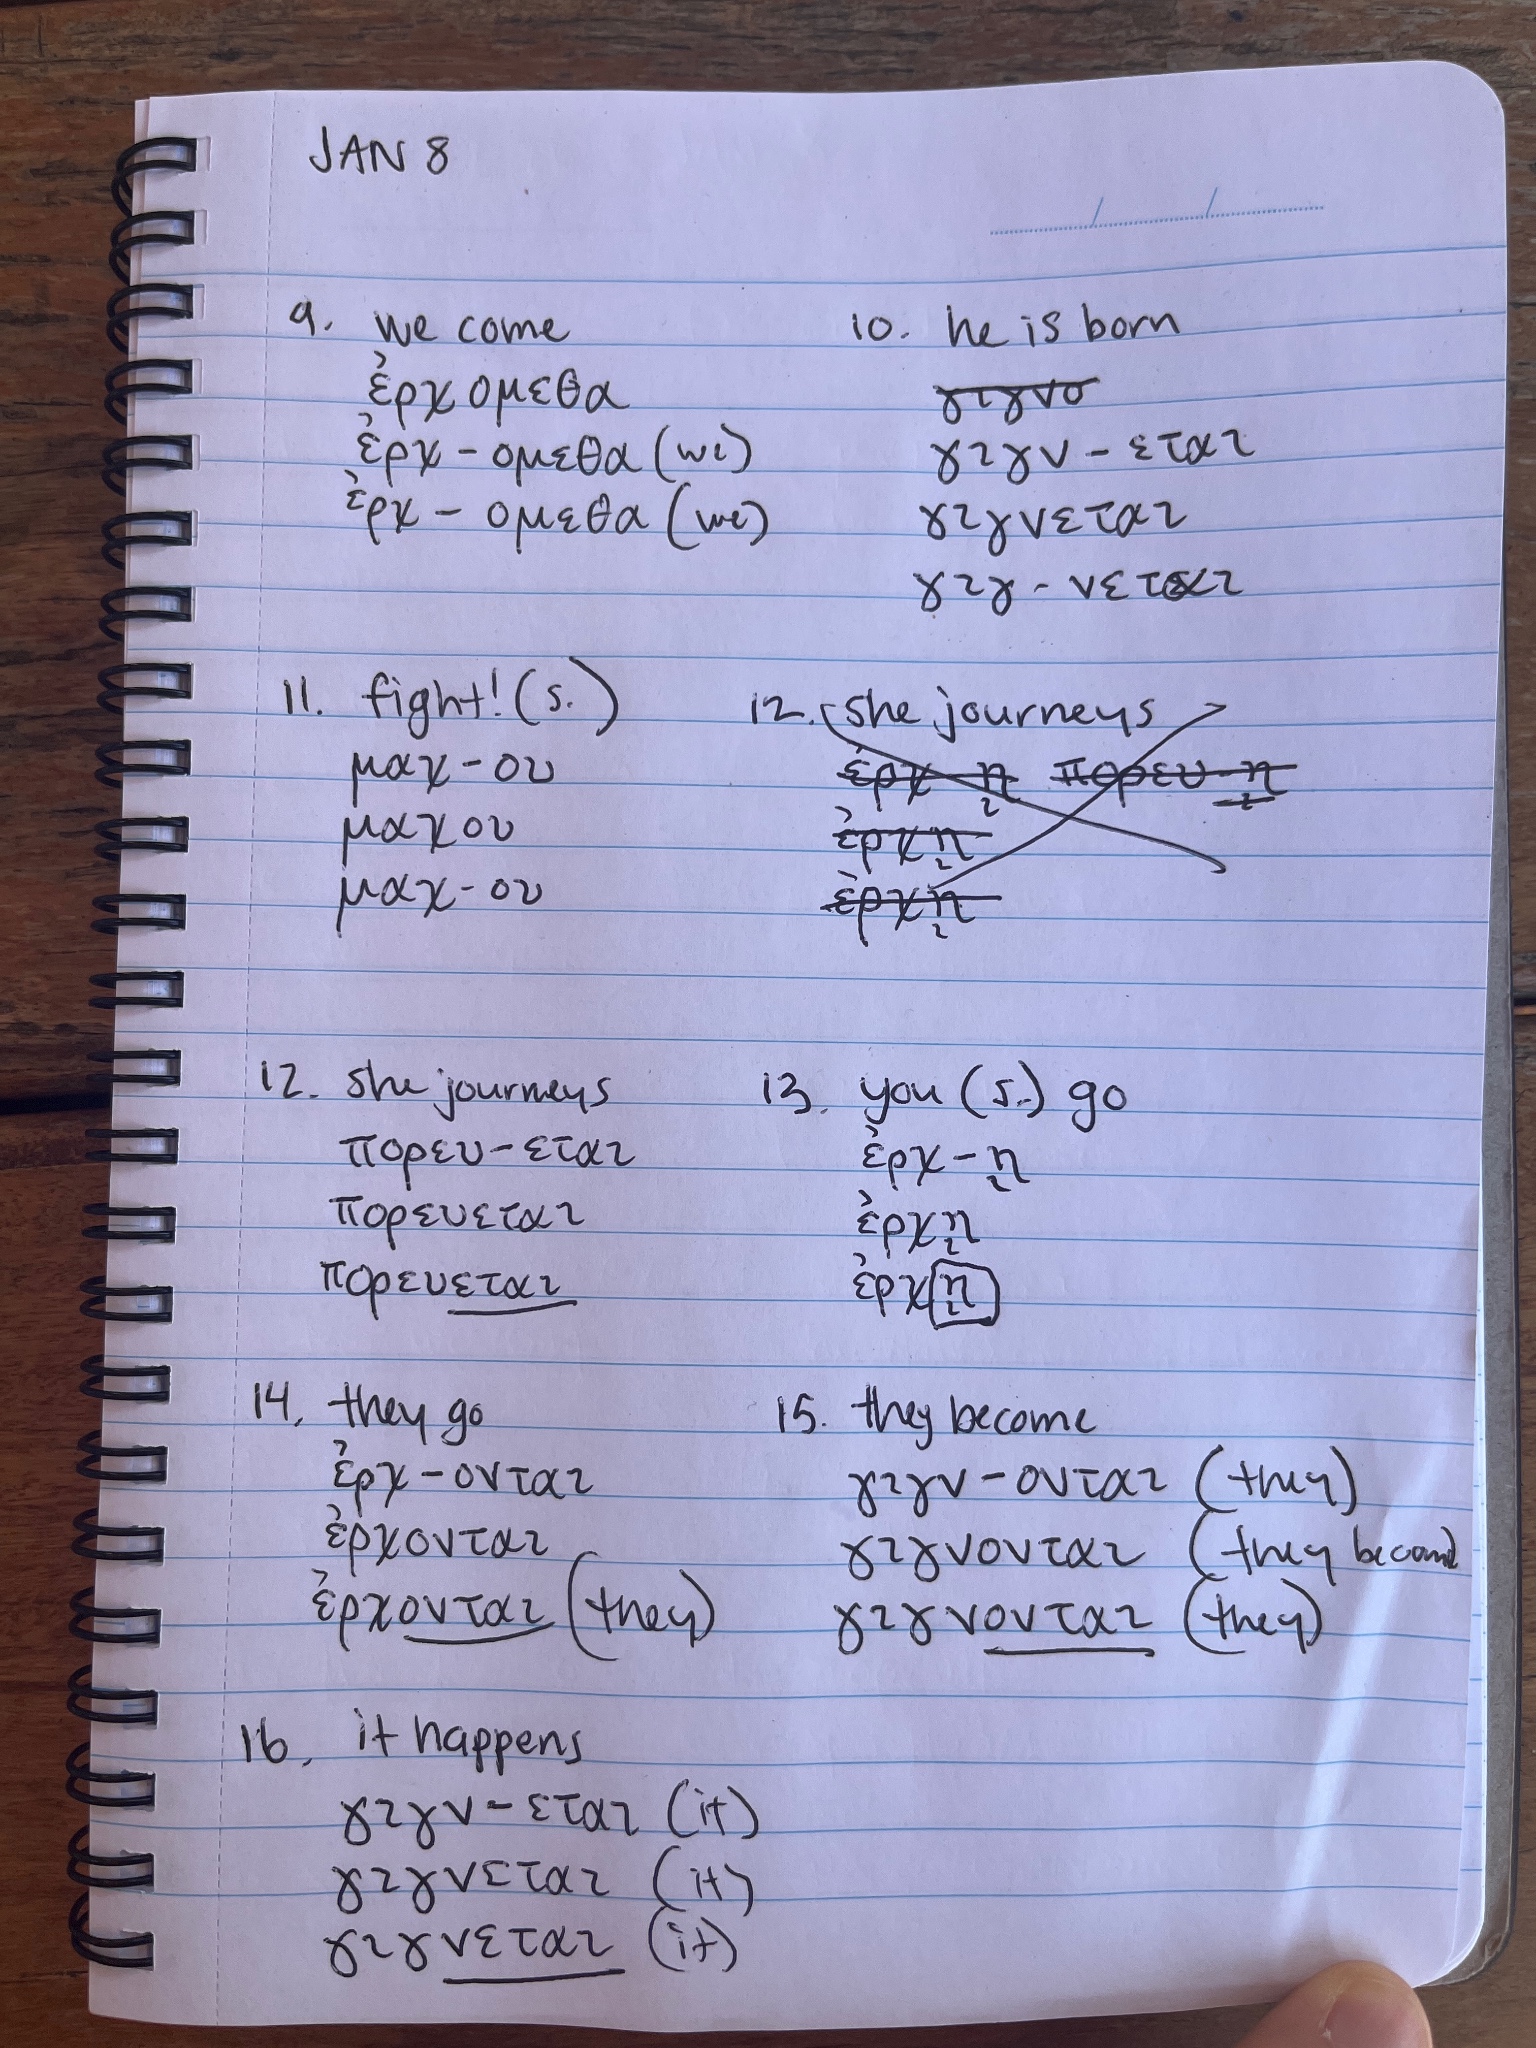 JAN 8
9. we come
ἐρχομεθα
ἐρχ - ομεθα (we)
ἐρχ - ομεθα (we)
10. he is born
γιγνο
γιγν - εται
γιγνεται
γιγ - νεται
11. fight! (s.)
μαχ - ου
μαχου
μαχ - ου
12. she journeys
ἐρχ - ῃ πορευ - ῃ
ἐρχῃ
ἐρχῃ
12. she journeys
πορευ - εται
πορευεται
πορευεται
13. you (s.) go
ἐρχ - ῃ
ἐρχῃ
ἐρχῃ
14. they go
ἐρχ - ονται
ἐρχονται
ἐρχονται (they)
15. they become
γιγν - ονται (they)
γιγνονται (they become
γιγνονται (they)
16. it happens
γιγν - εται (it)
γιγνεται (it)
γιγνεται (it)